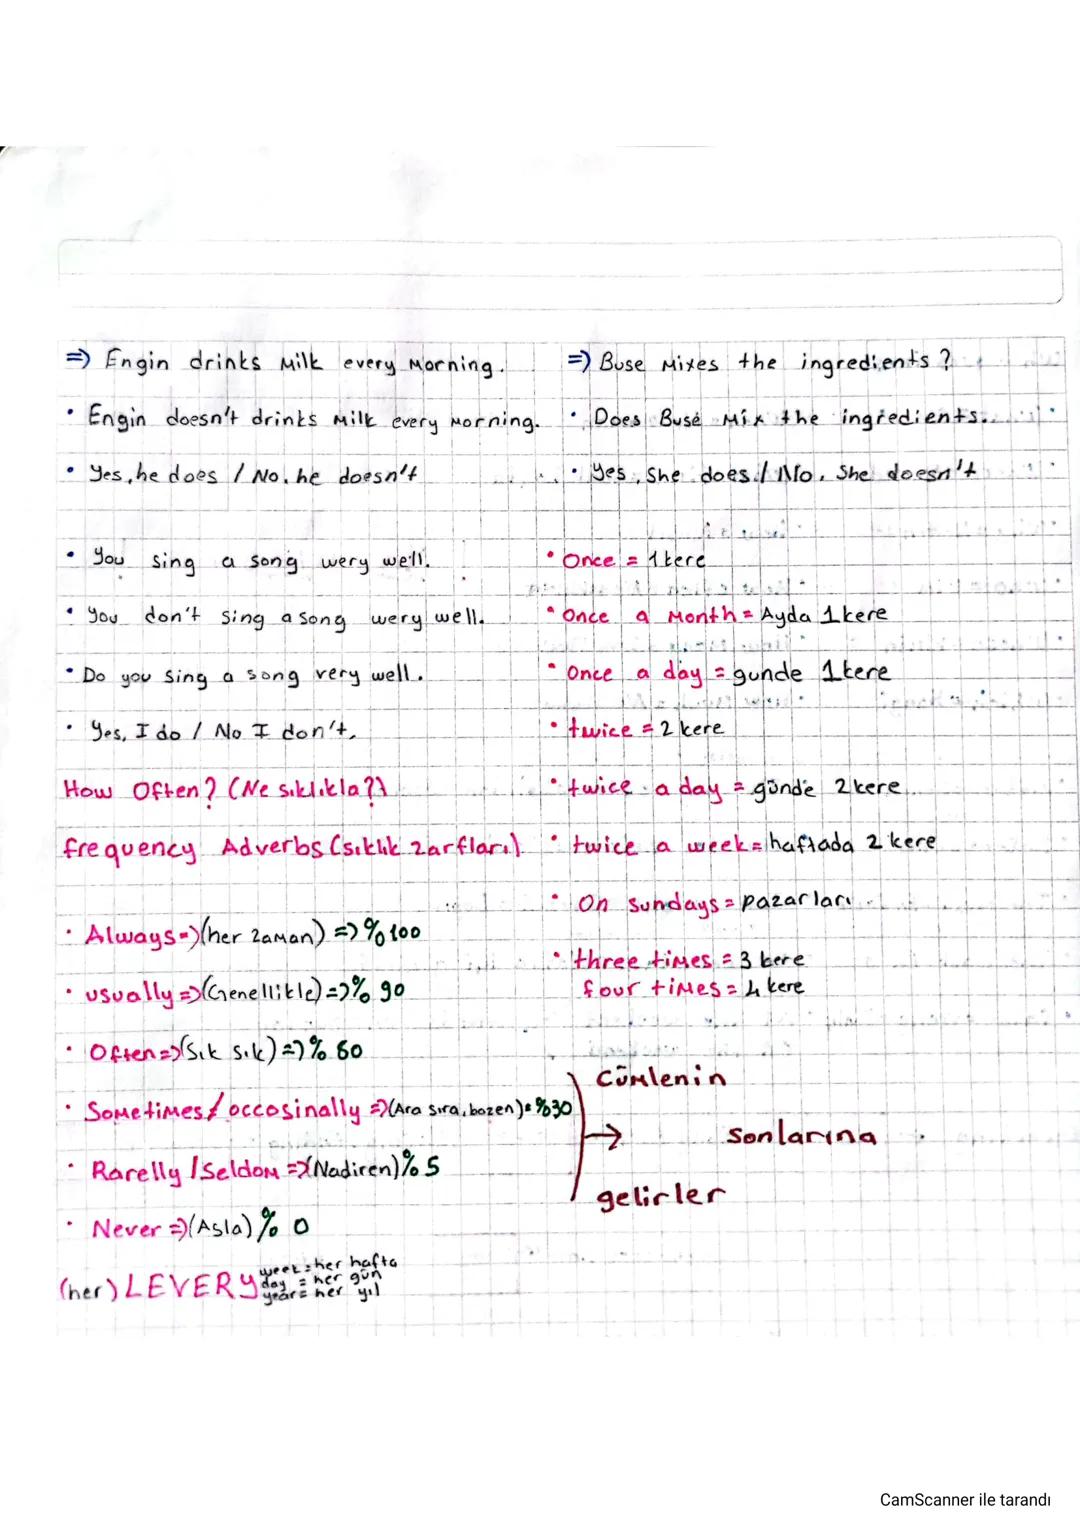 => Engin drinks Milk every Morning.
• Engin doesn't drinks Milk every Morning.
• Yes, he does / No. he doesn't
• You sing a song wery well.
• You don't sing a song wery well.
• Do you sing a song very well.
• Yes, I do / No I don't.
How Often? (Ne sıklıkla?)
frequency Adverbs (sıklık zarfları)
• Always=>(her zaman) => %100
• usually =>(Genellikle)=>% 90
• Often=>(Sık sık)=>% 60
• Sometimes/occosinally =>(Ara sıra, bazen)= %30
• Rarelly / Seldom =>(Nadiren)% 5
• Never =>(Asla) % 0
(her) LEVERY
week = her hafta
day = her gün
year = her yıl
=> Buse Mixes the ingredients ?
• Does Buse Mix the ingredients.
• Yes, She does / No, She doesn't
• Once = 1 kere
• Once a Month = Ayda 1 kere
• Once a day = gunde 1 kere
• twice = 2 kere
• twice a day = günde 2 kere
• twice a week = haftada 2 kere
• On sundays = pazarları
• three times = 3 kere
four times = 4 kere
Cümlenin
-> sonlarına
gelirler
CamScanner ile tarandı